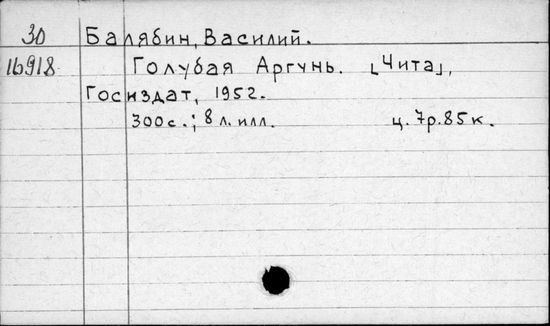 30
16918
Балябин, Василий.
Голубая Аргунь. [Чита],
Госиздат, 1952.
300с.; 8 л. илл. ц. 7р.85к.